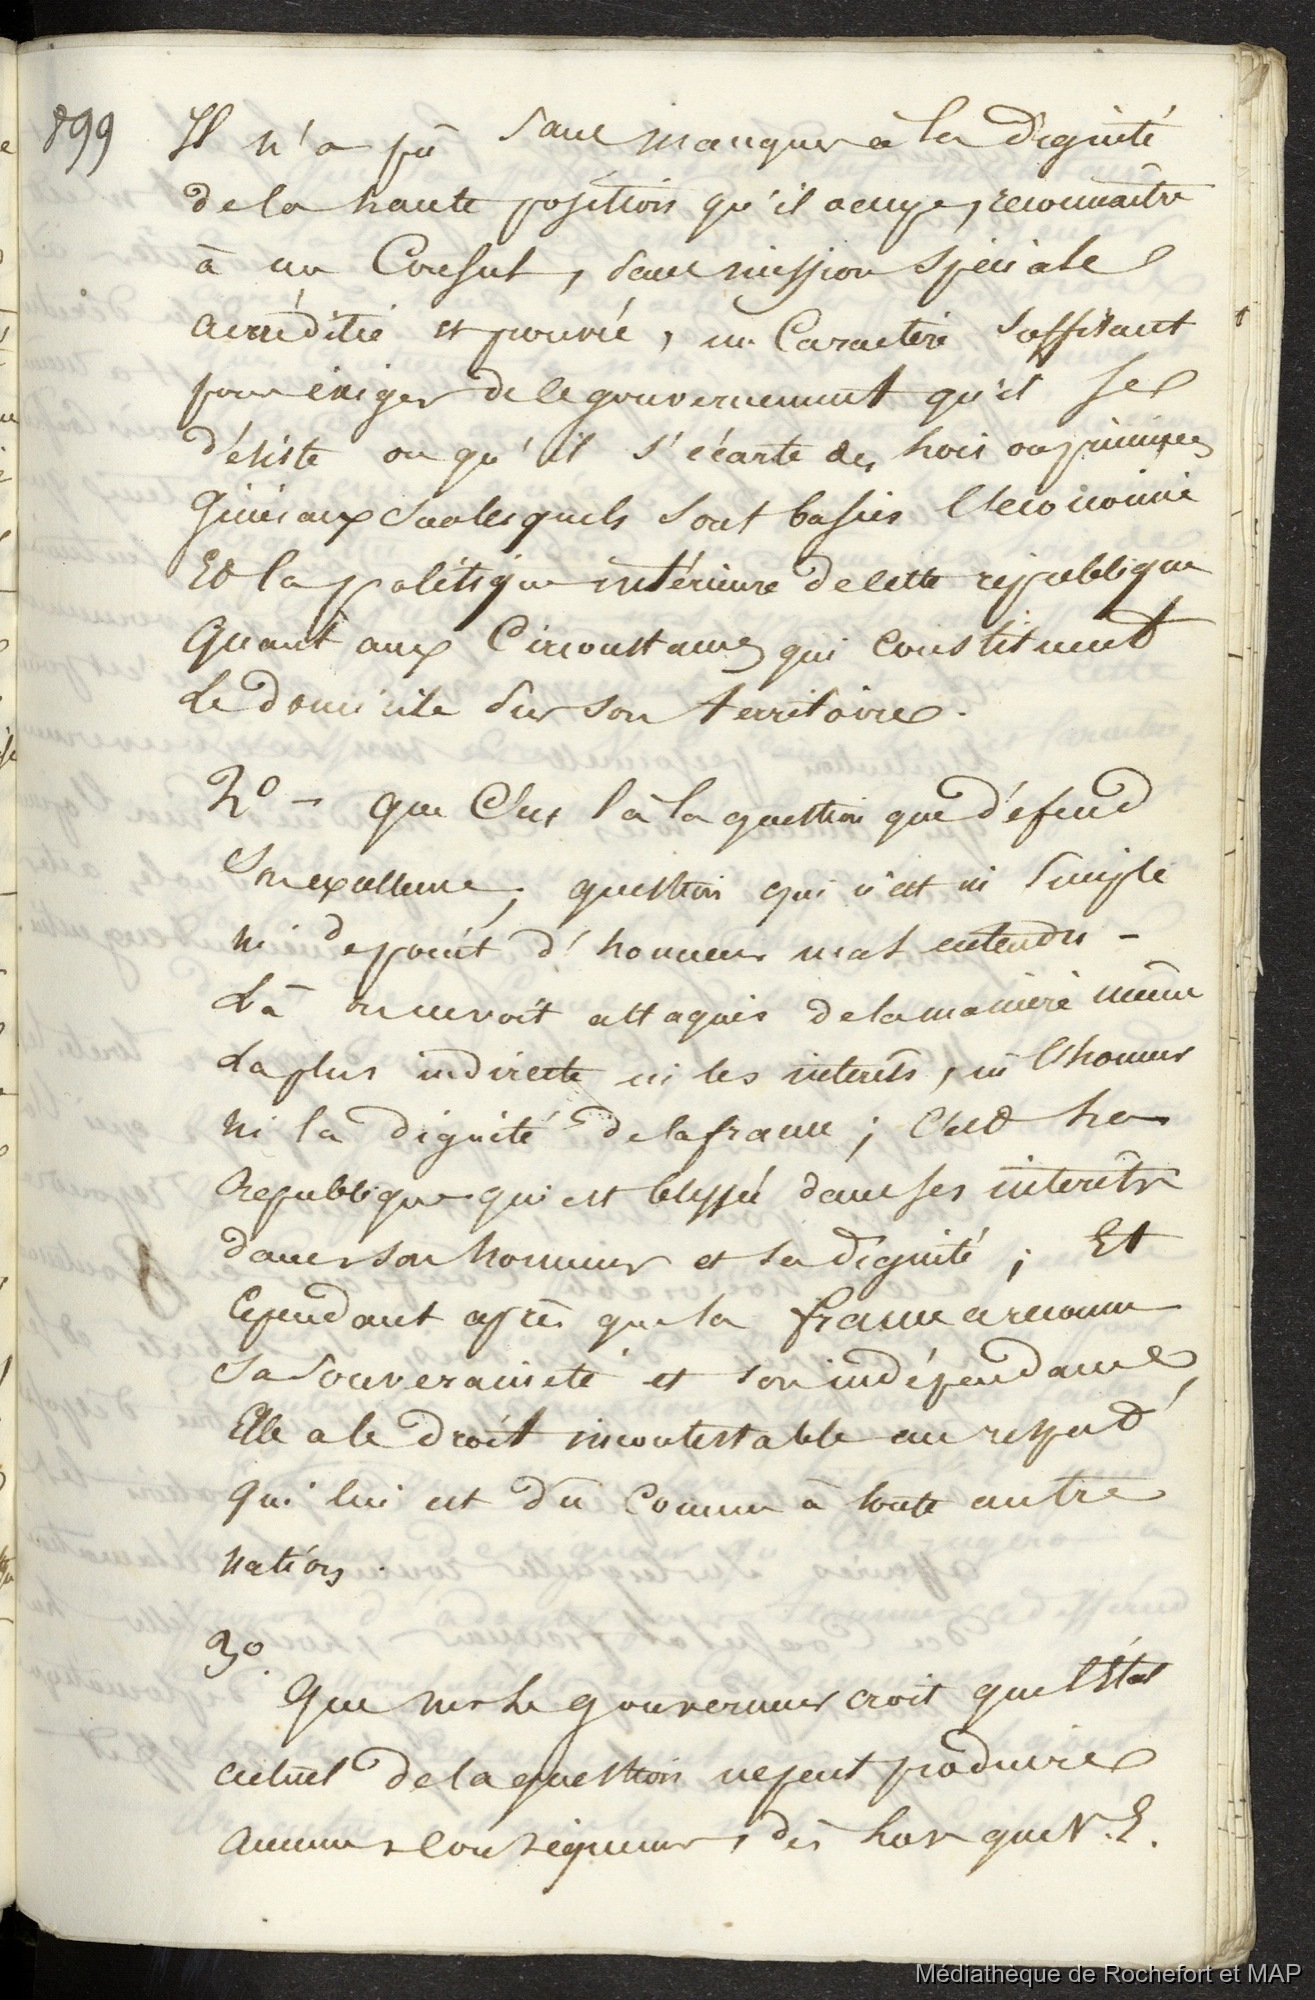 899
Il n'a pû sans manquer à la dignité
de la haute position qu'il occupe, reconnaitre
à un Consul, sans mission spéciale
accréditée et prouvée, un Caractère suffisant
pour exiger de le gouvernement qu'il se
désiste ou qu'il s'écarte des lois ou principes
Généraux sur lesquels sont basées l'économie
Et la politique intérieure de cette république
Quant aux Circonstances qui constituent
Le domicile sur son territoire.
2º - que C'est là la question que défend
Son excellence, question qui n'est ni simple
ni de point d'honneur mal entendu -
Là on ne voit attaqués de la manière même
La plus indirecte ni les interêts, ni l'honneur
ni la dignité de la france ; C'est la
Republique qui est blessée dans ses interêts
dans son honneur et sa dignité ; Et
Cependant après que la france a reconnu
Sa Souveraineté et son indépendance,
Elle a le droit incontestable au respect
qui lui est dû comme à toute autre
nation.
3º
Que mr le gouverneur croit que l'état
actuel de la question ne peut produire
aucunes conséquences, dès lors que V. E.
Médiathèque de Rochefort et MAP